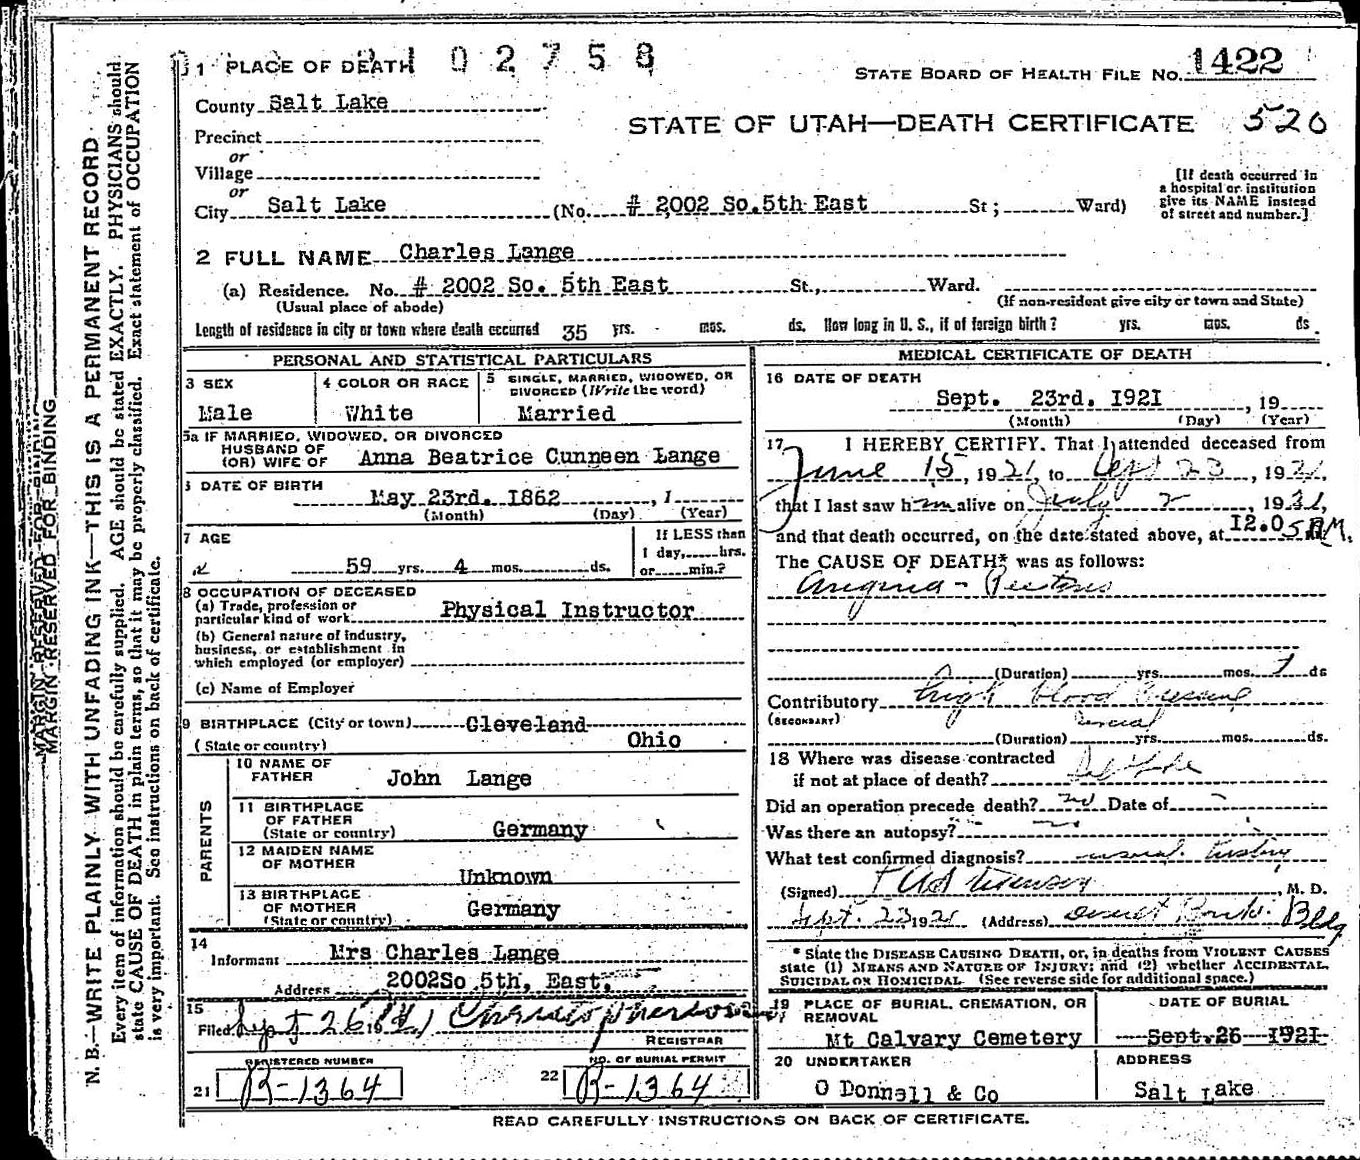 1 PLACE OF DEATH 1 0 2 7 5 8
STATE BOARD OF HEALTH FILE NO. 1422
County Salt Lake
STATE OF UTAH—DEATH CERTIFICATE 520
Precinct
or
Village
or
City Salt Lake (No. # 2002 So. 5th East St; Ward)
[If death occurred in
a hospital or institution
give its NAME instead
of street and number.]
2 FULL NAME Charles Lange
(a) Residence. No. # 2002 So. 5th East St., Ward.
(Usual place of abode) (If non-resident give city or town and State)
Length of residence in city or town where death occurred 35 yrs. mos. ds. How long in U. S., if of foreign birth? yrs. mos. ds.
PERSONAL AND STATISTICAL PARTICULARS
3 SEX 4 COLOR OR RACE 5 SINGLE, MARRIED, WIDOWED, OR
DIVORCED (Write the word)
Male White Married
5a IF MARRIED, WIDOWED, OR DIVORCED
HUSBAND OF
(OR) WIFE OF Anna Beatrice Cunneen Lange
6 DATE OF BIRTH
May 23rd. I862 , 1
(Month) (Day) (Year)
7 AGE If LESS than
1 day, hrs.
59 yrs. 4 mos. ds. or min.?
8 OCCUPATION OF DECEASED
(a) Trade, profession or
particular kind of work Physical Instructor
(b) General nature of industry,
business, or establishment in
which employed (or employer)
(c) Name of Employer
9 BIRTHPLACE (City or town) Cleveland
(State or country) Ohio
PARENTS
10 NAME OF
FATHER John Lange
11 BIRTHPLACE
OF FATHER
(State or country) Germany
12 MAIDEN NAME
OF MOTHER
Unknown
13 BIRTHPLACE
OF MOTHER
(State or country) Germany
14
Informant Mrs Charles Lange
Address 2002So 5th, East,
15
Filed Sept 26
REGISTRAR
REGISTERED NUMBER NO. OF BURIAL PERMIT
21 R-1364 22 R-1364
MEDICAL CERTIFICATE OF DEATH
16 DATE OF DEATH
Sept. 23rd. I92I , 19
(Month) (Day) (Year)
17 I HEREBY CERTIFY. That I attended deceased from
June 15, 1921, to Sept 23, 1921,
that I last saw him alive on July 2, 1921,
and that death occurred, on the date stated above, at I2.05 AM.
The CAUSE OF DEATH* was as follows:
Angina - Pectoris
(Duration) yrs. mos. 1 ds
Contributory high blood pressure
(SECONDARY) several
(Duration) yrs. mos. ds.
18 Where was disease contracted
if not at place of death? Salt Lake
Did an operation precede death? no Date of
Was there an autopsy? no
What test confirmed diagnosis?
(Signed) , M. D.
Sept. 23 1921 (Address) Deseret Bank Bldg
* State the DISEASE CAUSING DEATH, or, in deaths from VIOLENT CAUSES
state (1) MEANS AND NATURE OF INJURY; and (2) whether ACCIDENTAL,
SUICIDAL OR HOMICIDAL (See reverse side for additional space.)
19 PLACE OF BURIAL, CREMATION, OR
REMOVAL
Mt Calvary Cemetery
DATE OF BURIAL
Sept. 26 I92I
20 UNDERTAKER ADDRESS
O Donnell & Co Salt Lake
READ CAREFULLY INSTRUCTIONS ON BACK OF CERTIFICATE.
MARGIN RESERVED FOR BINDING
MARGIN RESERVED FOR BINDING
N. B.—WRITE PLAINLY WITH UNFADING INK—THIS IS A PERMANENT RECORD
Every item of information should be carefully supplied. AGE should be stated EXACTLY. PHYSICIANS should
state CAUSE OF DEATH in plain terms, so that it may be properly classified. Exact statement of OCCUPATION
is very important. See instructions on back of certificate.